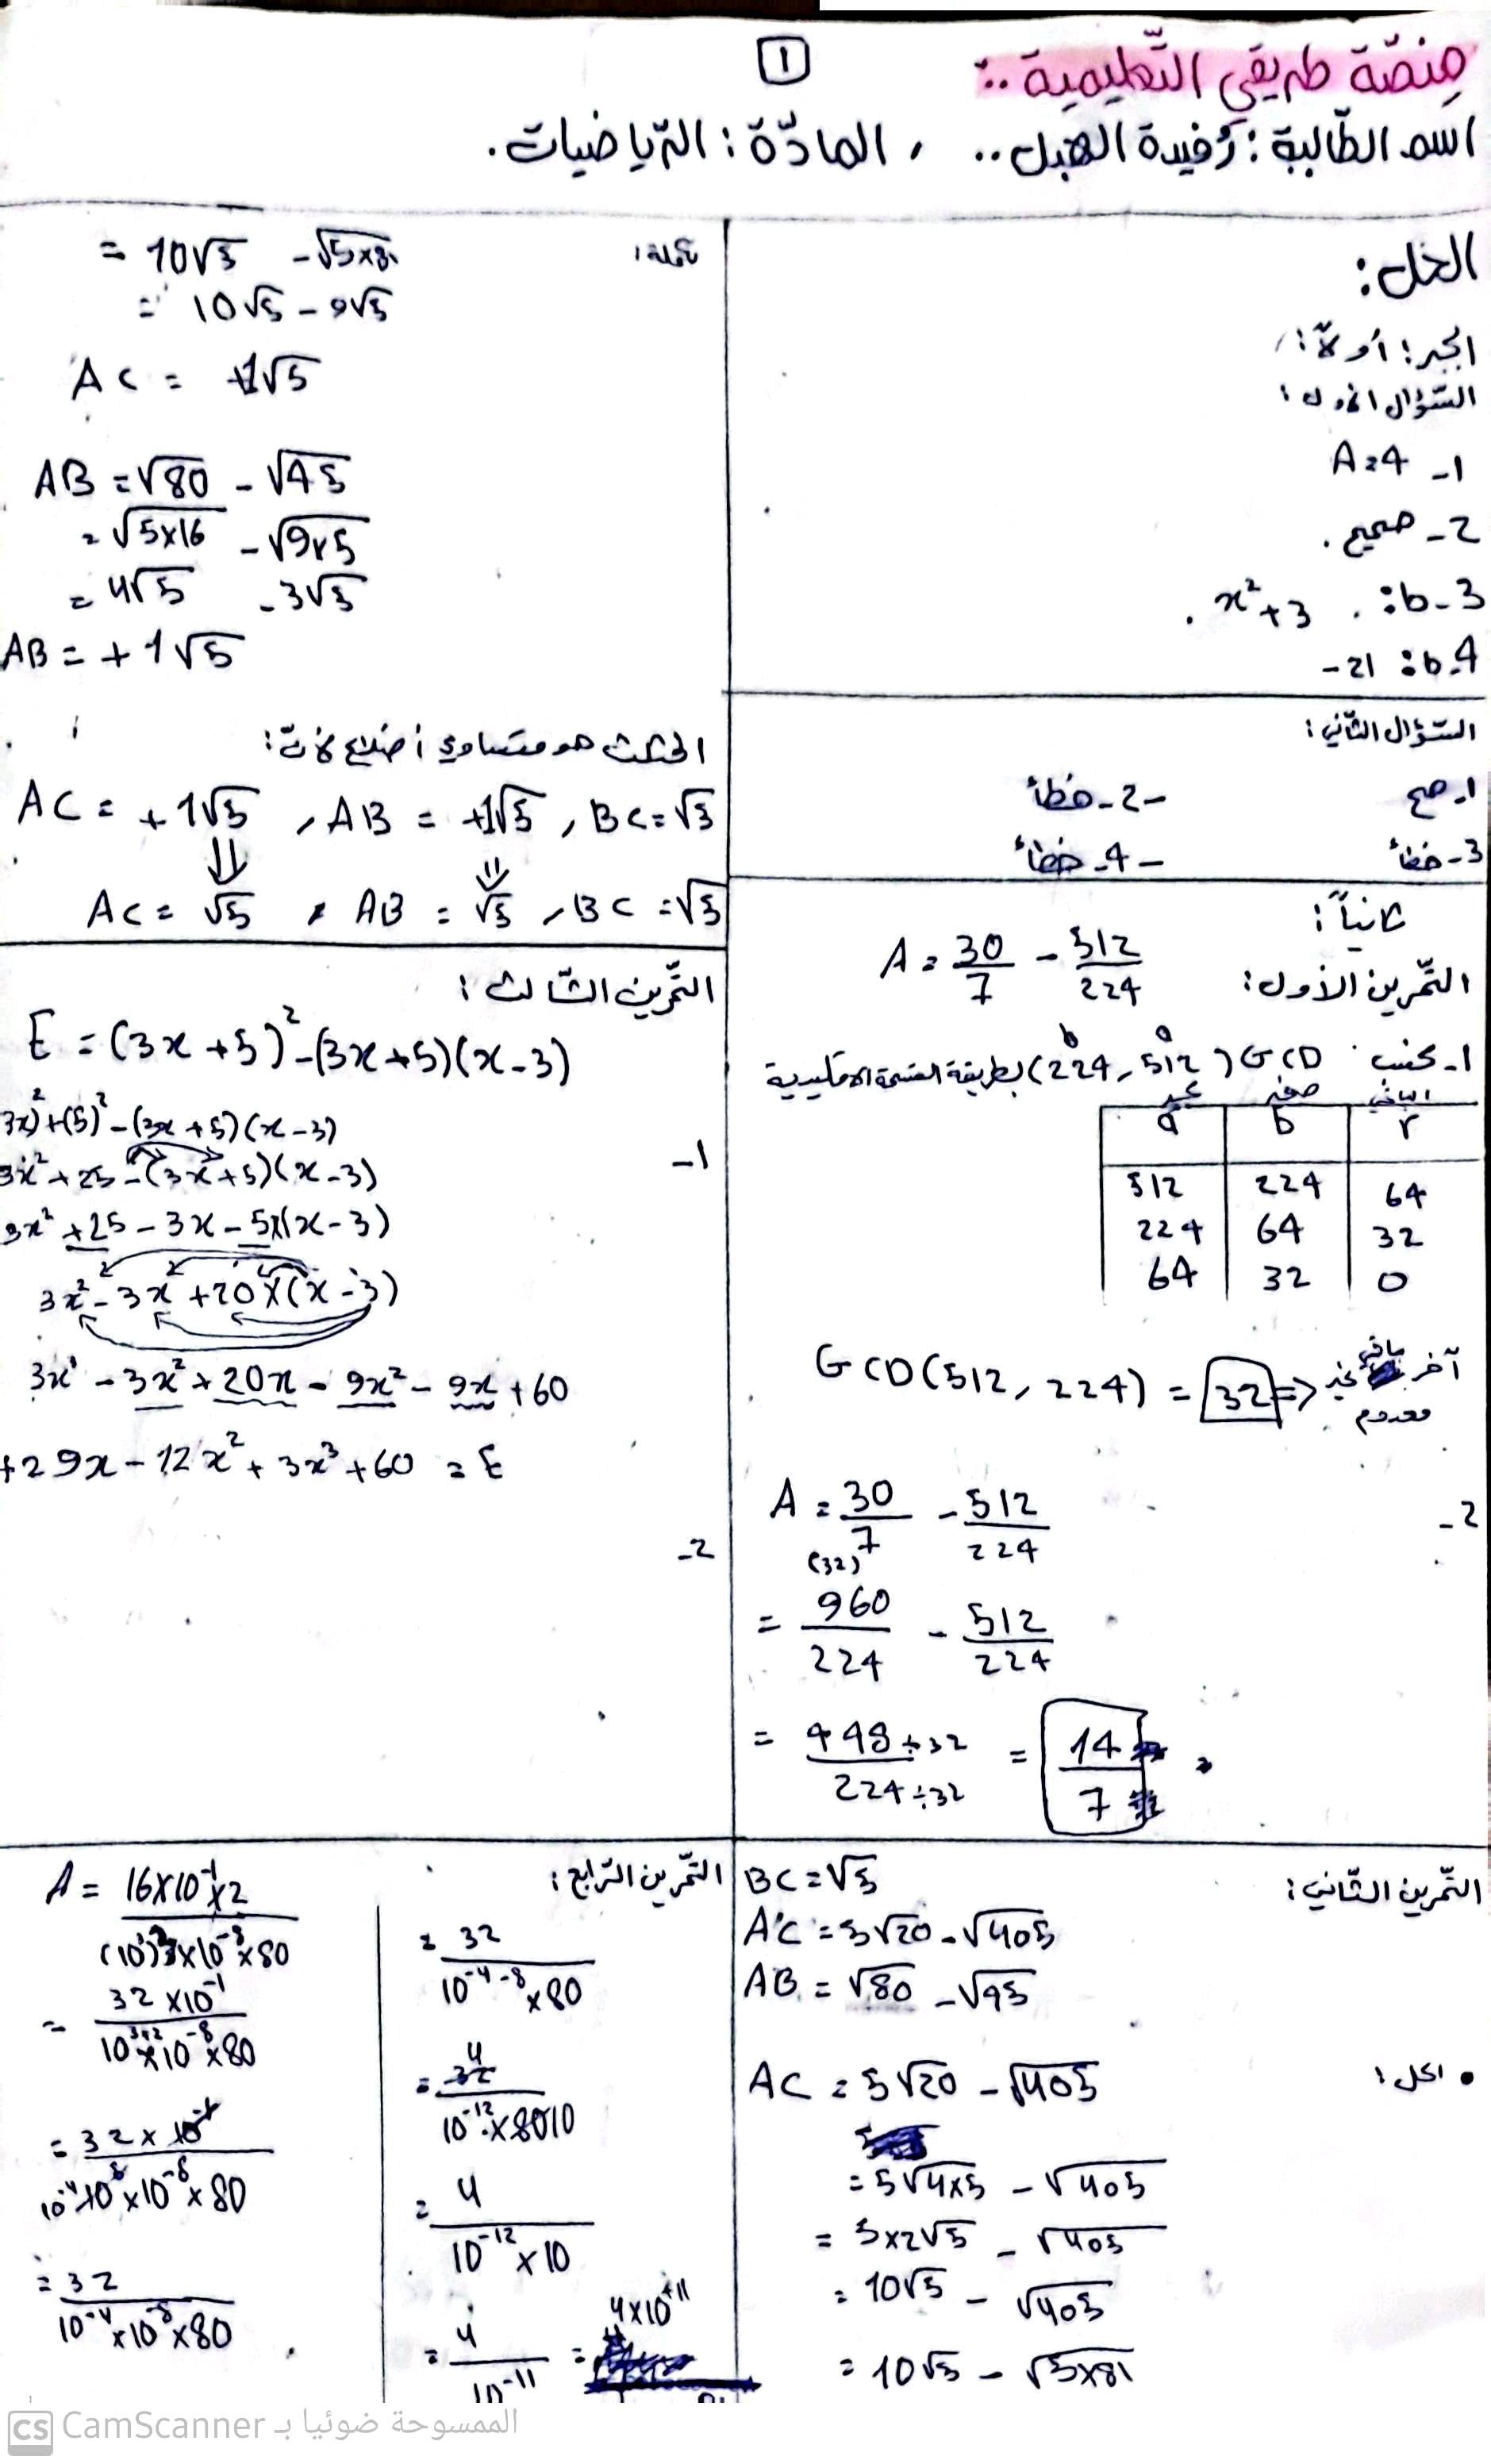 منصّة طريقي التّعليمية ..
1
اسم الطّالبة : رُفيدة الهبل .. ، المادّة : الرّياضيات .
الحل :
الجبر : أولاً :
السّؤال الأول :
1- A=4
2- صحيح .
3-b: x²+3 .
4-b: -21
السّؤال الثّاني :
1- صح
2- خطأ
3- خطأ
4- خطأ
ثانياً :
التّمرين الأول :
A = 30/7 - 512/224
1- نحسب GCD (512, 224) بطريقة القسمة الاقليدية
a b r
512 224 64
224 64 32
64 32 0
GCD(512, 224) = 32 => آخر باقي غير معدوم
2-
A = 30/7 - 512/224
(32)
= 960/224 - 512/224
= 448÷32/224÷32 = 14/7
التّمرين الثّاني :
BC = √5
AC = 5√20 - √405
AB = √80 - √45
• الحل :
AC = 5√20 - √405
= 5√4x5 - √405
= 5x2√5 - √405
= 10√5 - √405
= 10√5 - √5x81
تكملة :
= 10√5 - √5x81
= 10√5 - 9√5
AC = +1√5
AB = √80 - √45
= √5x16 - √9x5
= 4√5 - 3√5
AB = +1√5
المثلث هو متساوي أضلاع لأنّ :
AC = +1√5 , AB = +1√5 , BC = √5
AC = √5 , AB = √5 , BC = √5
التّمرين الثّالث :
E = (3x+5)² - (3x+5)(x-3)
1-
3x)²+(5)² - (3x+5)(x-3)
3x² + 25 - (3x+5)(x-3)
3x² + 25 - 3x - 5x(x-3)
3x² - 3x + 20x(x-3)
3x³ - 3x² + 20x - 9x² - 9x + 60
+29x - 12x² + 3x³ + 60 = E
2-
التّمرين الرّابع :
A = 16x10⁻¹x2/(10³)²x10⁻⁸x80
= 32x10⁻¹/10³ˣ²x10⁻⁸x80
= 32x10⁻¹/10⁻⁴10⁵x10⁻⁸x80
= 32/10⁻⁴x10⁻⁸x80
= 32/10⁻⁴⁻⁸x80
= 4 32/10⁻¹²x8010
= 4/10⁻¹²x10
= 4/10⁻¹¹ = 4x10⁺¹¹
CS الممسوحة ضوئيا بـ CamScanner